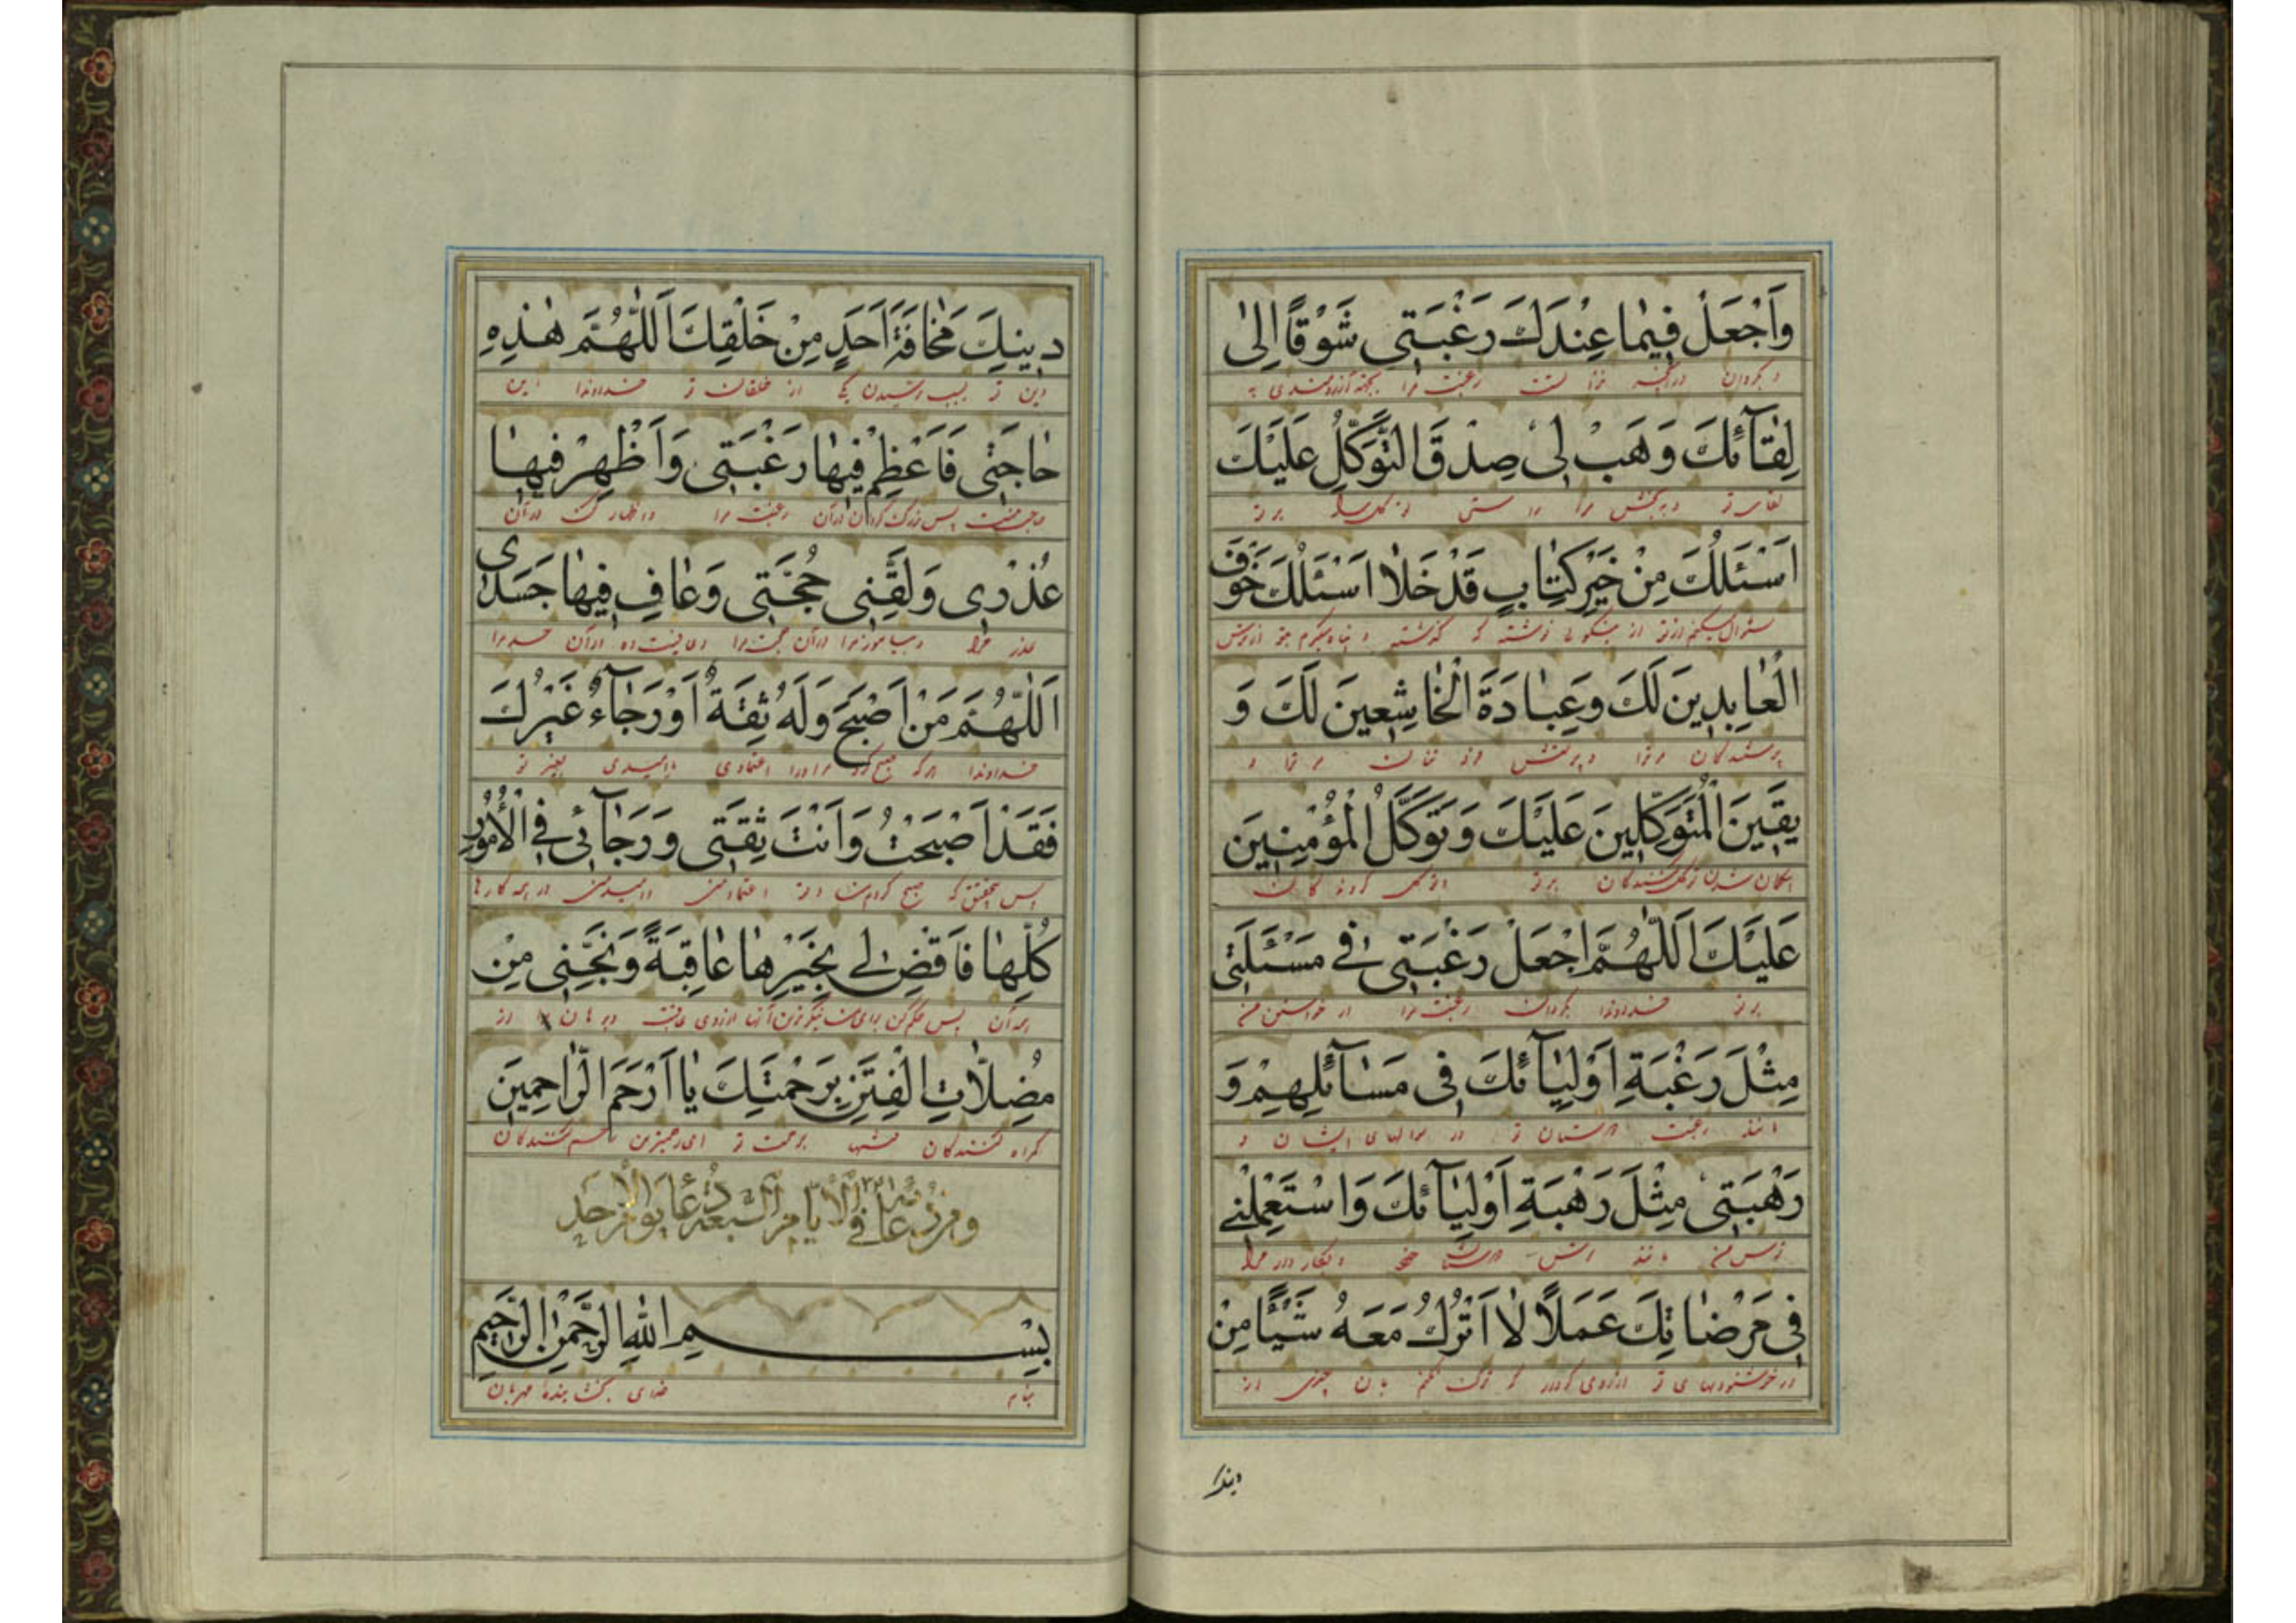 وَاَجْعَلْ فِيمٰا عِنْدَكَ رَغْبَتِى شَوْقًا اِلىٰ
و بگردان در آنچه نزد تست رغبت مرا بجهة آرزومندى به
لِقٰآئِكَ وَهَبْ لِى صِدْقَ التَّوَكُّلِ عَلَيْكَ
لقاى تو و ببخش مرا راستى توكل بر تو
اَسْئَلُكَ مِنْ خَيْرِ كِتٰابٍ قَدْ خَلاٰ اَسْئَلُكَ خَوْفَ
سئوال ميكنم از تو از نيكوئى نوشته كه گذشته
الْعٰابِدِينَ لَكَ وَعِبٰادَةَ الْخٰاشِعِينَ لَكَ وَ
پرستندگان مر ترا و پرستش مر ترا و
يَقِينَ الْمُتَوَكِّلِينَ عَلَيْكَ وَتَوَكُّلَ الْمُؤْمِنِينَ
توكل كنندگان بر تو
عَلَيْكَ اَللّٰهُمَّ اجْعَلْ رَغْبَتِى فِى مَسْئَلَتِى
بر تو خداوندا بگردان رغبت مرا در خواستن من
مِثْلَ رَغْبَةِ اَوْلِيٰآئِكَ فِى مَسٰآئِلِهِمْ وَ
مانند رغبت دوستان تو در سوالهاى ايشان و
رَهْبَتِى مِثْلَ رَهْبَةِ اَوْلِيٰآئِكَ وَاسْتَعْمِلْنِى
ترس من مانند ترس دوستان خود و بكار دار مرا
فِى مَرْضٰاتِكَ عَمَلاً لاٰ اَتْرُكُ مَعَهُ شَيْئًا مِنْ
در خوشنوديهاى تو كه ترك نكنم بآن چيزى از
دِينِكَ مَخٰافَةَ اَحَدٍ مِنْ خَلْقِكَ اَللّٰهُمَّ هٰذِهِ
دين تو بسبب ترسيدن يكى از خلقان تو خداوندا اين
حٰاجَتِى فَاَعْظِمْ فِيهٰا رَغْبَتِى وَاَظْهِرْ فِيهٰا
حاجت منست پس بزرگ گردان در آن رغبت مرا و اظهار كن در آن
عُذْرِى وَلَقِّنِى حُجَّتِى وَعٰافِ فِيهٰا جَسَدِى
عذر مرا و بياموز مرا در آن حجت مرا و عافيت ده در آن جسد مرا
اَللّٰهُمَّ مَنْ اَصْبَحَ وَلَهُ ثِقَةٌ اَوْ رَجٰآءٌ غَيْرُكَ
خداوندا هر كه صبح كرد و مر او را اعتمادى يا اميدى بغير تو
فَقَدْ اَصْبَحْتُ وَاَنْتَ ثِقَتِى وَرَجٰآئِى فِى الْاُمُورِ
پس بتحقيق كه صبح كردم من و تو اعتماد من و اميد من در همه كارها
كُلِّهٰا فَاقْضِ لِى بِخَيْرِهٰا عٰاقِبَةً وَنَجِّنِى مِنْ
همه آن پس حكم كن براى من نيكوترين آنها از روى عاقبت و برهان مرا از
مُضِلاّٰتِ الْفِتَنِ بِرَحْمَتِكَ يٰا اَرْحَمَ الرّٰاحِمِينَ
گمراه كنندگان فتنها برحمت تو اى رحيمترين رحم كنندگان
و من دعائه فى الايام السبعة دعاء يوم الاحد
بِسْمِ اللهِ الرَّحْمٰنِ الرَّحِيمِ
بنام خداى بخشاينده مهربان